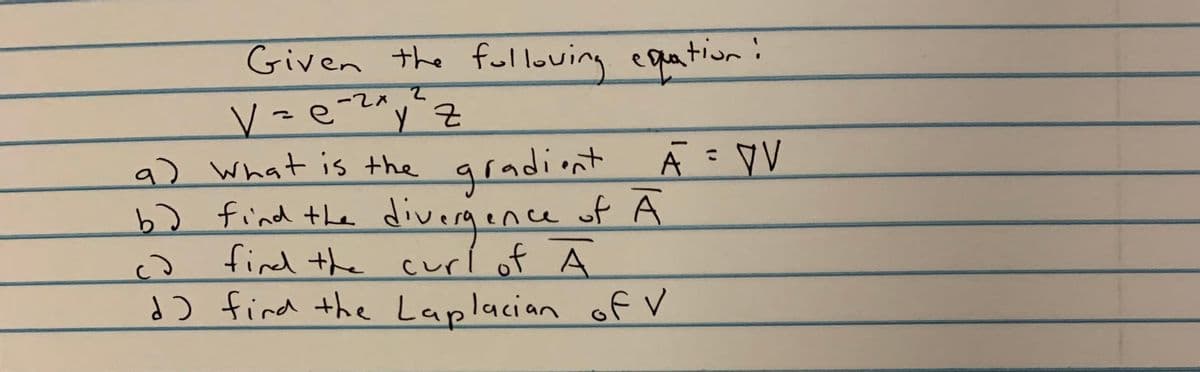 Given the following equation:
V = e^{-2x} y^2 z
a) What is the gradient Ā = ∇V
b) find the divergence of Ā
c) find the curl of Ā
d) find the Laplacian of V